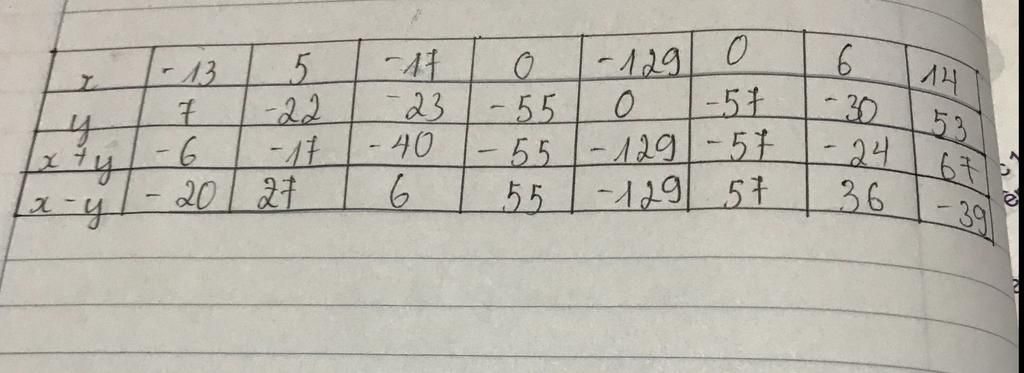 x -13 5 -17 0 -129 0 6 14
y 7 -22 -23 -55 0 -57 -30 53
x+y -6 -17 -40 -55 -129 -57 -24 67
x-y -20 27 6 55 -129 57 36 -39